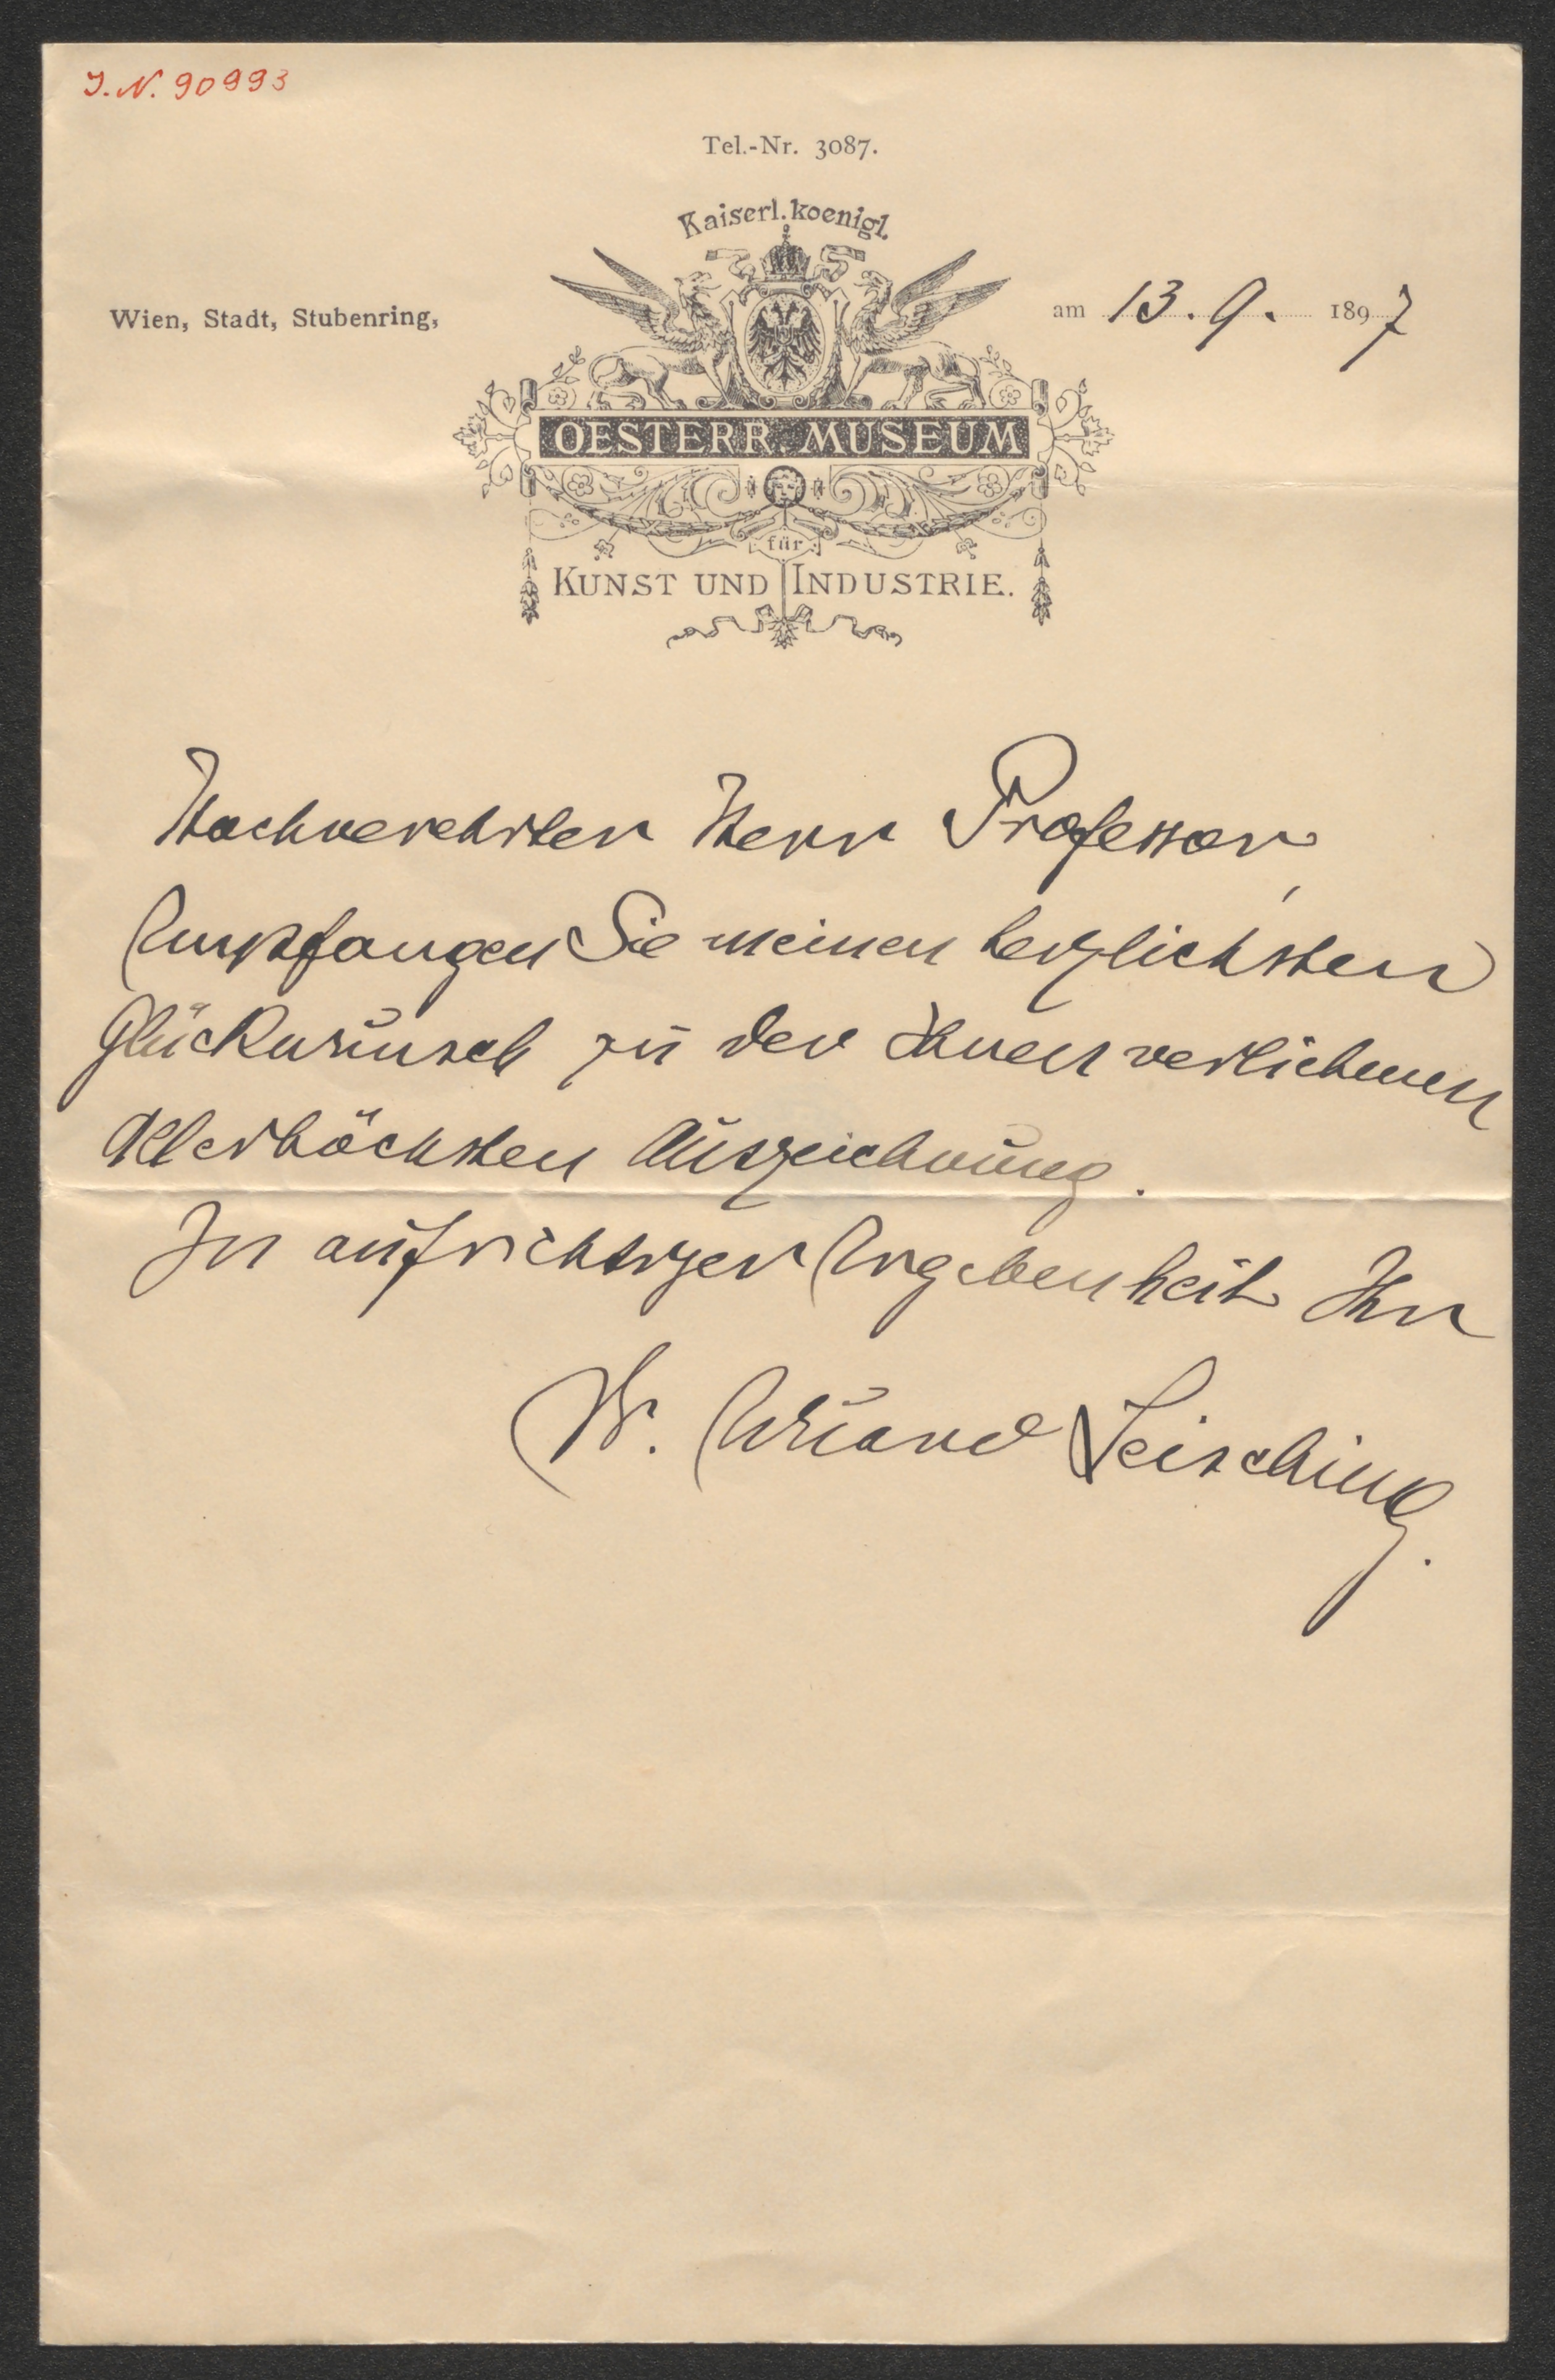 J.N. 90993
Tel.-Nr. 3087.
Kaiserl. koenigl.
Wien, Stadt, Stubenring,
am 13. 9. 1897
OESTERR. MUSEUM
für
KUNST UND INDUSTRIE.
Hochverehrter Herr Professor,
Empfangen Sie meinen herzlichsten
Glückwunsch zu der Ihnen verliehenen
Allerhöchsten Auszeichnung.
In aufrichtiger Ergebenheit Ihr
Dr. Eduard Leisching.